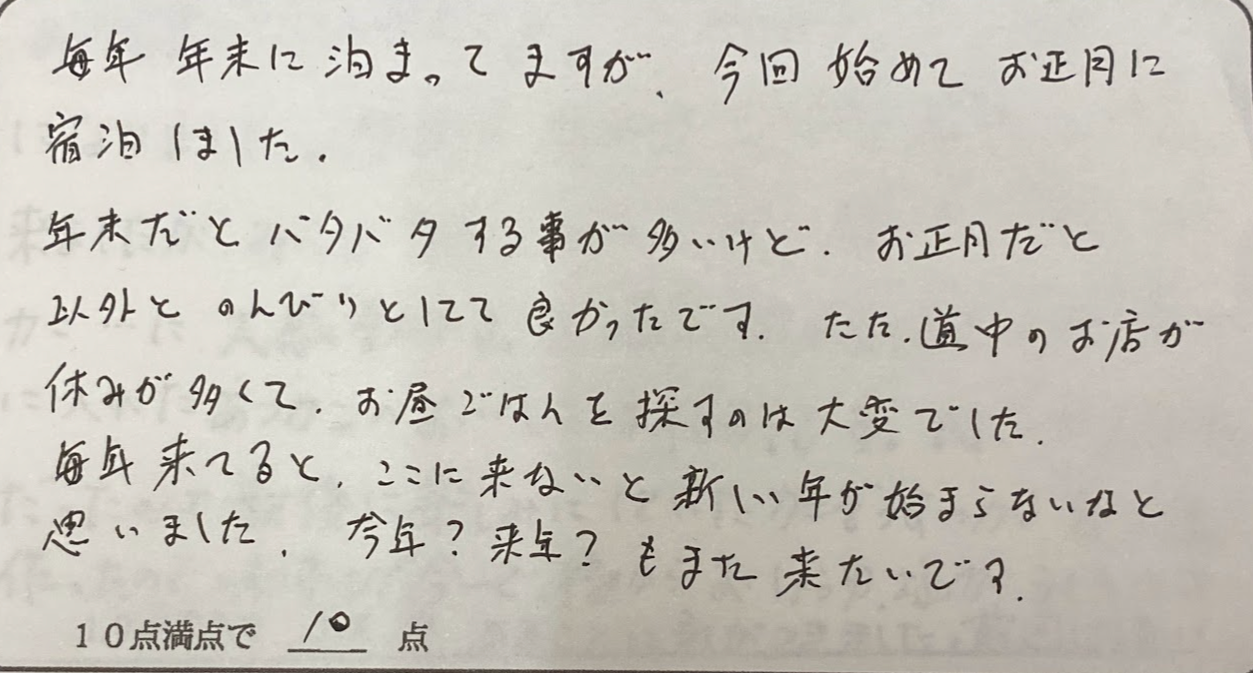 毎年 年末に泊まってますが、今回 始めて お正月に
宿泊しました。
年末だと バタバタする事が多いけど、お正月だと
以外と のんびりとしてて 良かったです。ただ、道中のお店が
休みが多くて、お昼ごはんを探すのは大変でした。
毎年来てると、ここに来ないと新しい年が始まらないなと
思いました。今年？来年？もまた来たいです。
10点満点で 10 点